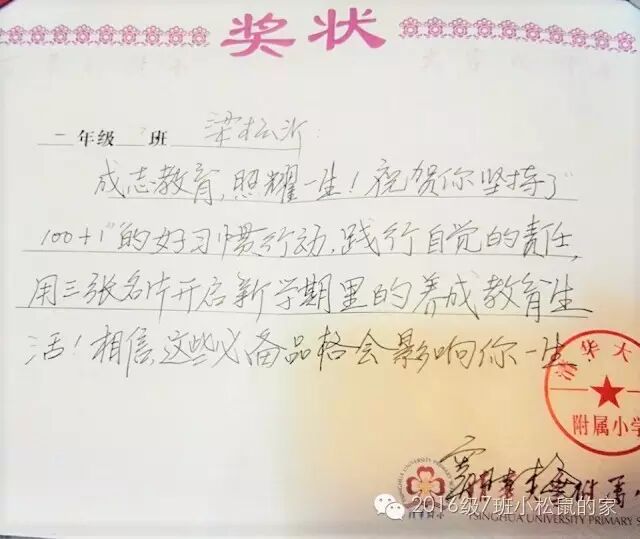 奖状
一年级7班 梁松沂:
成志教育,照耀一生!祝贺你坚持了“
100+1”的好习惯行动,践行自觉的责任,
用三张名片开启新学期里的养成教育生
活!相信,这些必备品格会影响你一生.
清华大
附属小学
TSINGHUA UNIVERSITY PRIMARY S
2016级7班小松鼠的家